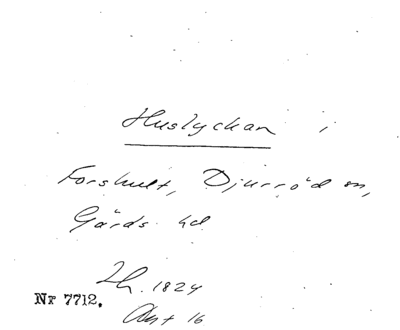 Huslyckan i
Forshult, Djurröd sn,
Gärds hd
Lh. 1824
Nr 7712.
Akt 16